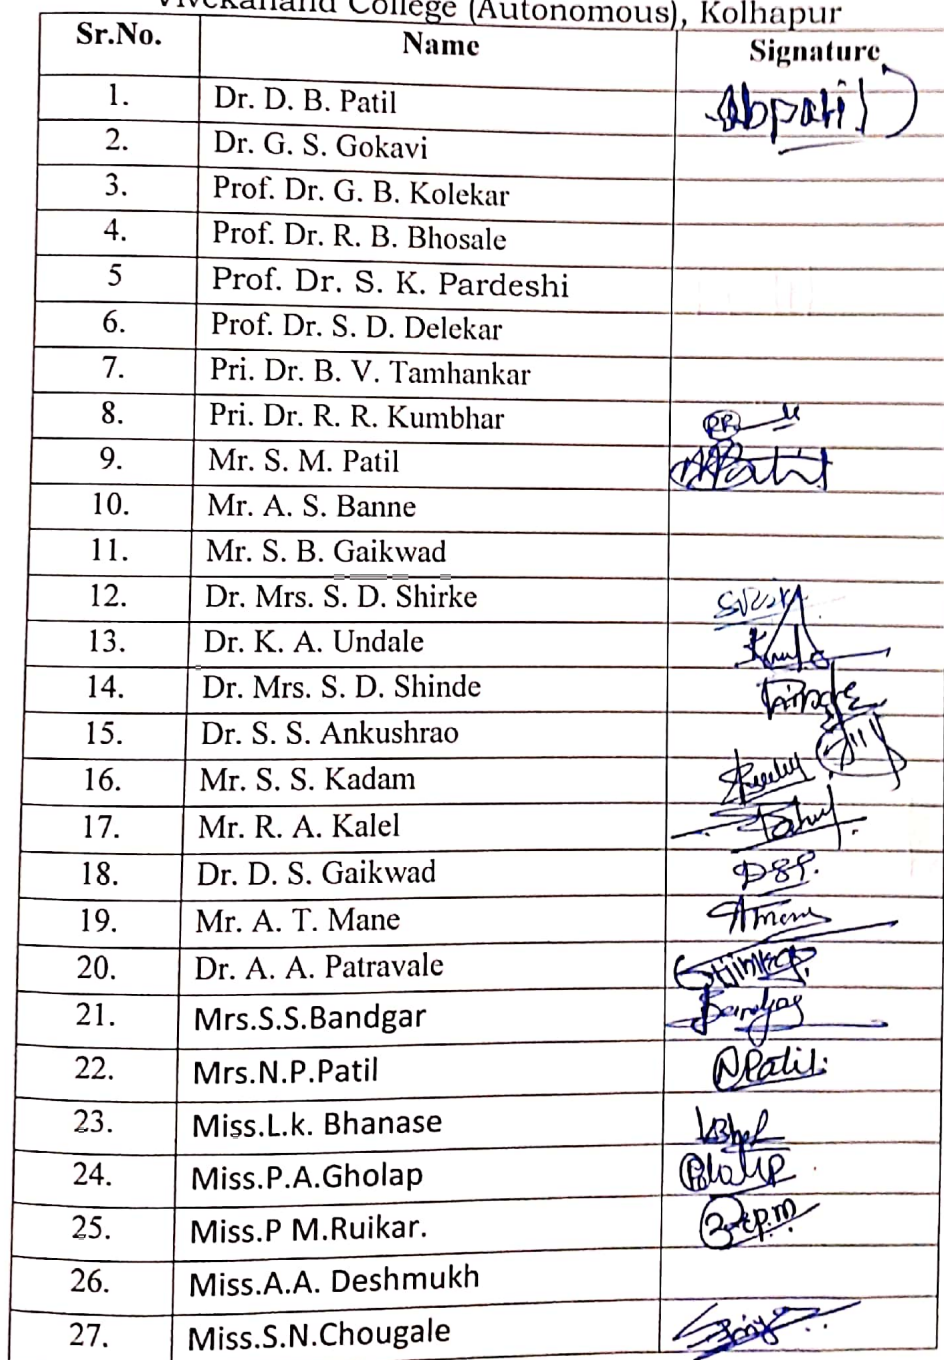 Vivekanand College (Autonomous), Kolhapur
Sr.No. Name Signature
1. Dr. D. B. Patil Dbpatil
2. Dr. G. S. Gokavi
3. Prof. Dr. G. B. Kolekar
4. Prof. Dr. R. B. Bhosale
5 Prof. Dr. S. K. Pardeshi
6. Prof. Dr. S. D. Delekar
7. Pri. Dr. B. V. Tamhankar
8. Pri. Dr. R. R. Kumbhar
9. Mr. S. M. Patil
10. Mr. A. S. Banne
11. Mr. S. B. Gaikwad
12. Dr. Mrs. S. D. Shirke
13. Dr. K. A. Undale
14. Dr. Mrs. S. D. Shinde
15. Dr. S. S. Ankushrao
16. Mr. S. S. Kadam
17. Mr. R. A. Kalel
18. Dr. D. S. Gaikwad
19. Mr. A. T. Mane
20. Dr. A. A. Patravale
21. Mrs.S.S.Bandgar
22. Mrs.N.P.Patil NPatil
23. Miss.L.k. Bhanase
24. Miss.P.A.Gholap
25. Miss.P M.Ruikar.
26. Miss.A.A. Deshmukh
27. Miss.S.N.Chougale